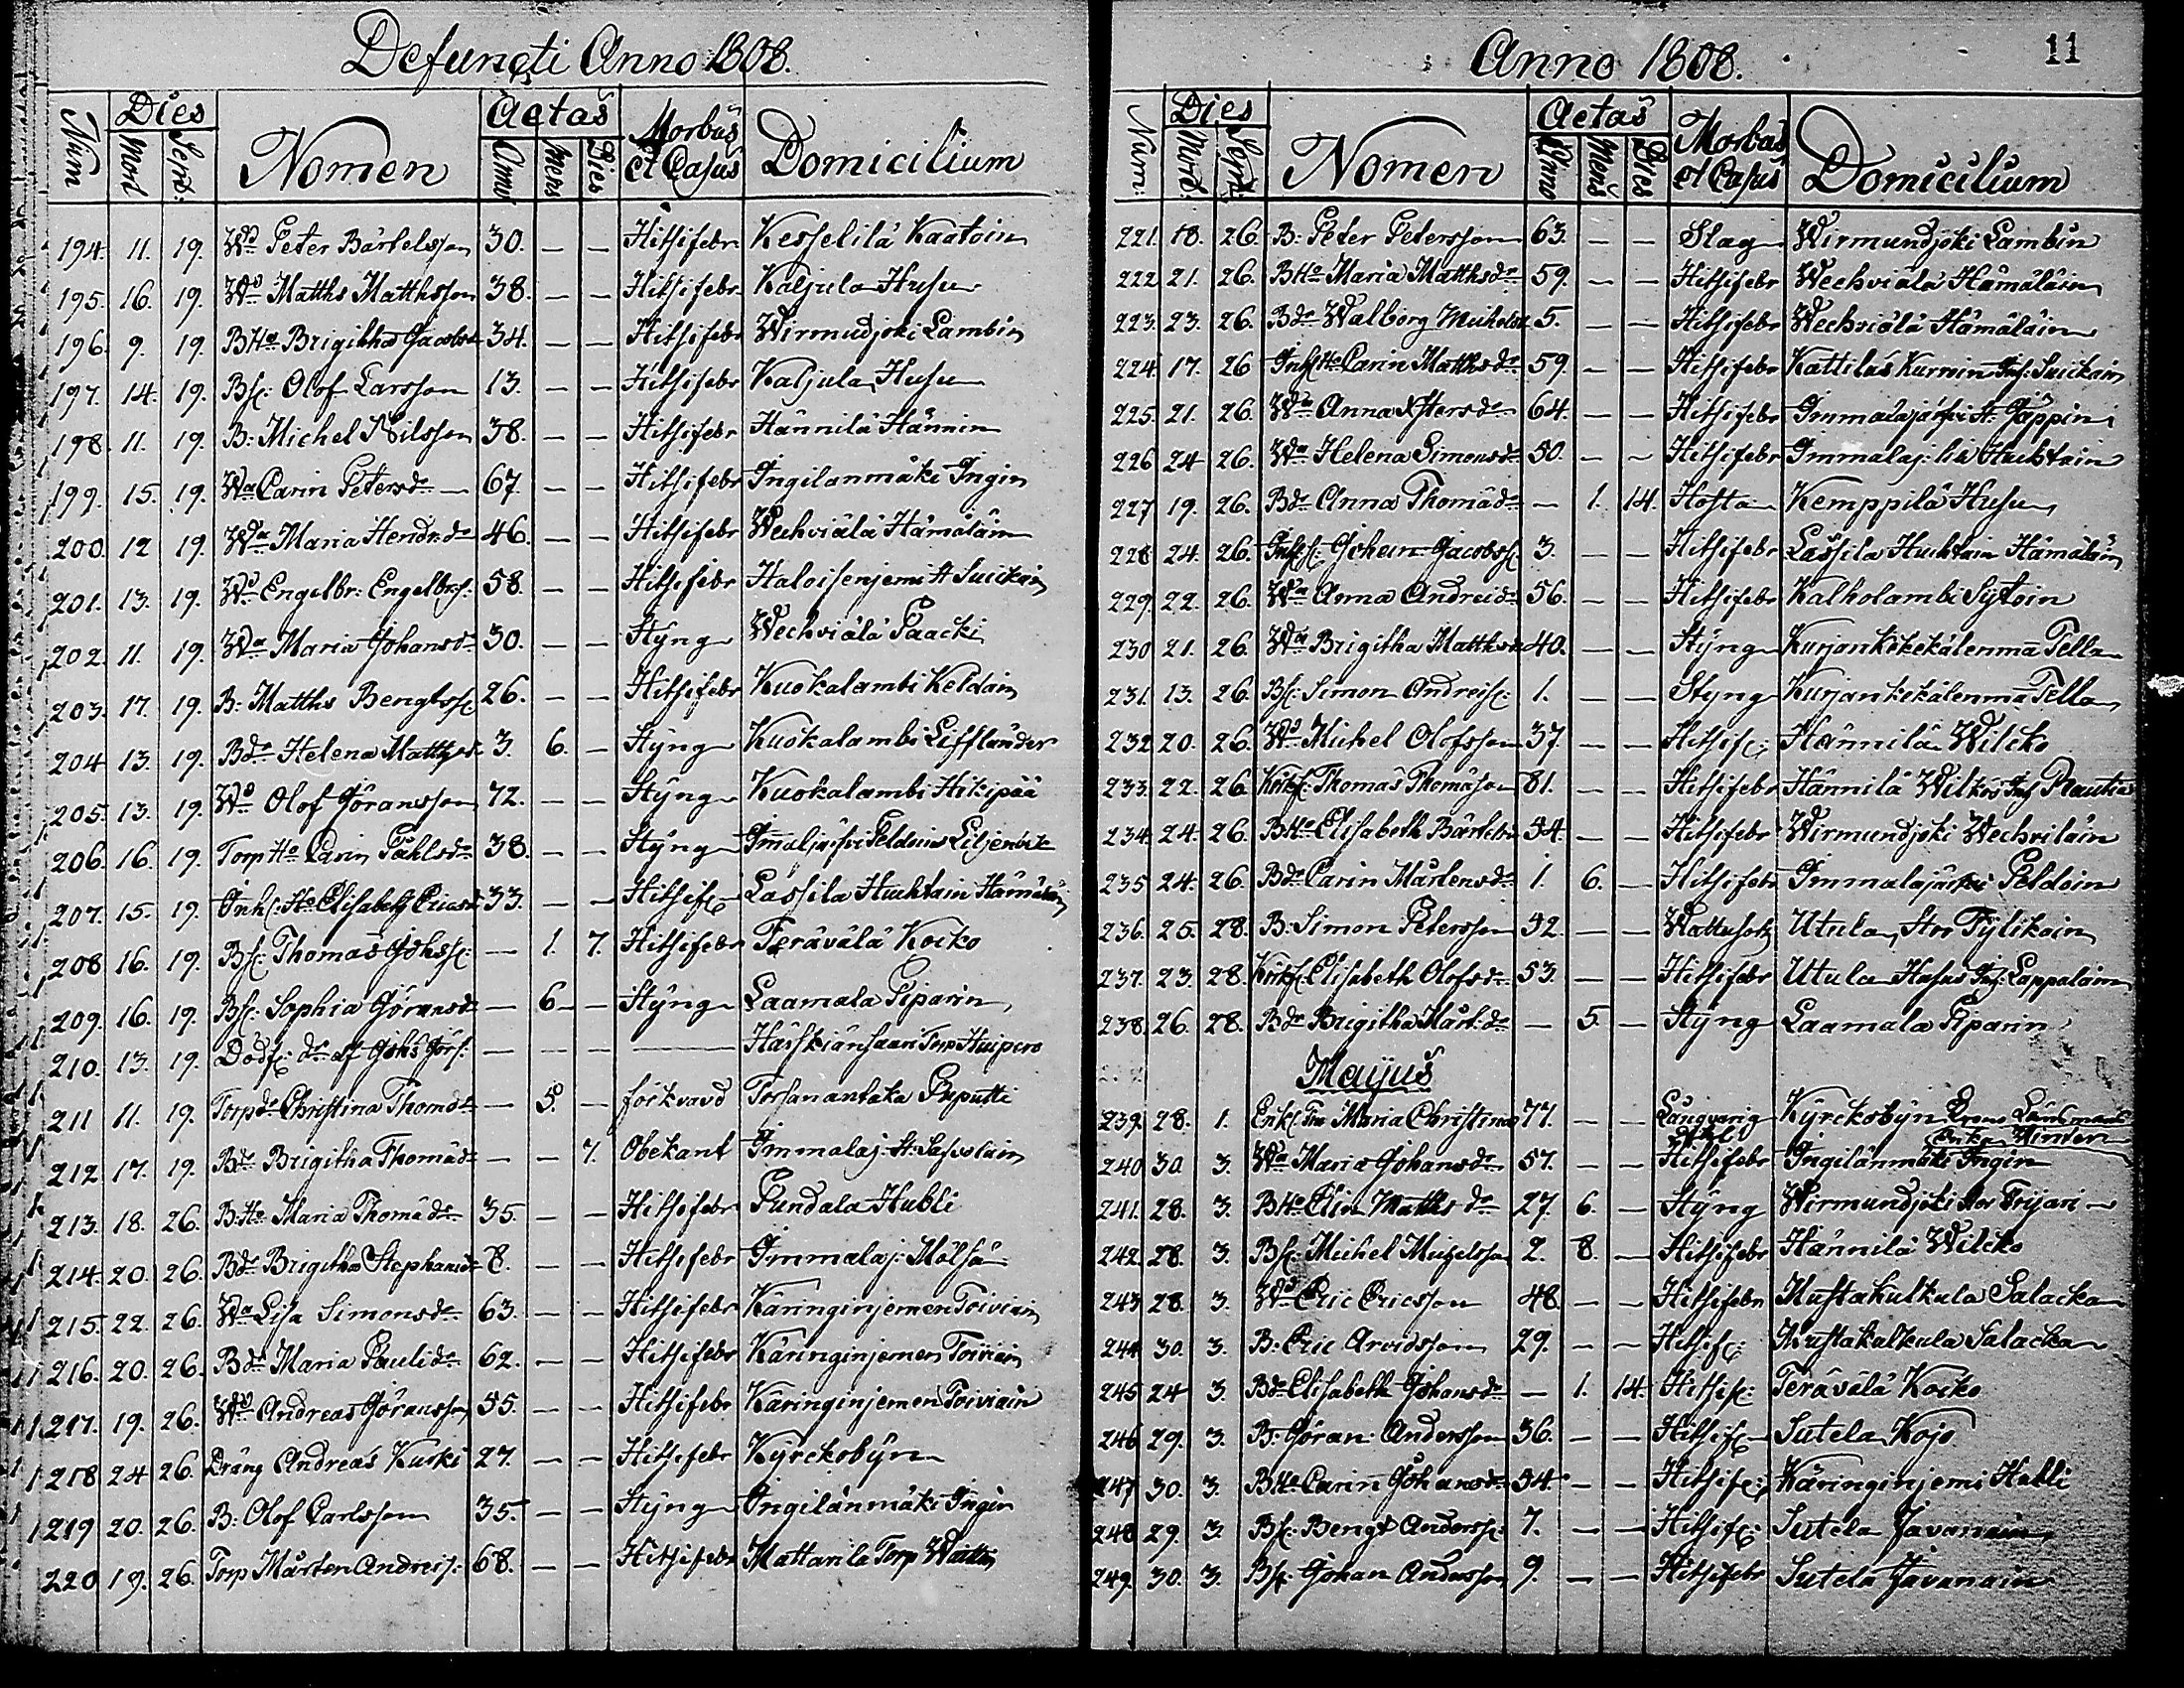 Defuncti Anno 1808.
Num Dies Nomen Aetas Morbus et Casus Domicilium
Mort. Sept. Anno Mens Dies
194. 11. 19. Wd Peter Bärtelsson 30. — — Hitsifebr Kesselilä Kaatoin
195. 16. 19. Wd Matths Matthsson 38. — — Hitsifebr Kaljula Husu
196. 9. 19. BHo Brigitha Jacobsd 34. — — Hitsifebr Wirmudjoki Lambin
197. 14. 19. Bs: Olof Larsson 13. — — Hitsifebr Kaljula Husu
198. 11. 19. B: Michel Nilsson 38. — — Hitsifebr Hännilä Hännin
199. 15. 19. Wa Carin Petersdr — 67. — — Hitsifebr Ingilanmäki Ingin
200. 12 19. Wa Maria Hendr.dr 46. — — Hitsifebr Wechviälä Hämäläin
201. 13. 19. Wd Engelbr: Engelbr:s: 58. — — Hitsifebr Haloisenjemi H Suickain
202. 11. 19. Wa Maria Johansdr 30. — — Styng Wechviälä Paacki
203. 17. 19. B: Matths Bengtss: 26. — — Hitsifebr Kuokalambi Keldain
204 13. 19. Bdr Helena Matthsd 3. 6. — Styng Kuokalambi Lifflander
205. 13. 19. Wd Olof Göransson 72. — — Styng Kuokalambi Hikipää
206. 16. 19. Torp Ho Carin Påhlsdr 38. — — Styng Imaljärfvi Peldoin Liljenvik
207. 15. 19. Inhs: Ho Elisabeth Ericsd 33. — — Hitsifs Lässila Huuhtain Hämäläin
208 16. 19. Bs: Thomas Johss: — 1. 7. Hitsifebr Terävälä Kocko
209. 16. 19. Bs: Sophia Göransd — 6 — Styng Laamala Piparin
210. 13. 19. Dödf: dr af Johs Görs: — — — — Härskiänsaari Torp Huipero
211 11. 19. Torpdr Christina Thomdr — 5. — Torsanantaka Puputti
212 17. 19. Bdr Brigitha Thomädr — — 7. Obekant Immalaj: H:
213. 18. 26. B:Ho Maria Thomädr 35. — — Hitsifebr Pundala Hubli
214. 20. 26. Bdr Brigitha Stephansdr 8. — — Hitsifebr Immalaj: Mölsä
215. 22. 26. Wa Lisa Simonsdr 63. — — Hitsifebr Käringinjemen Toiviain
216. 20. 26. Bdr Maria Paulidr 62. — — Hitsifebr Käringinjemen Toiviain
217. 19. 26. Wd Andreas Göransson 55. — — Hitsifebr Käringinjemen Toiviain
218 24 26. Dräng Andreas Kurki 27. — — Hitsifebr Kyrckobyn
219 20. 26. B: Olof Carlsson 35. — — Styng Ingilänmäki Ingin
220 19. 26. Torp Mårten Andreis: 68. — — Hitsifebr Mattarila Torp
Anno 1808. 11
Num: Dies Nomen Aetas Morbus et Casus Domicilium
Mort: Sept: Anno Mens Dies
221. 18. 26. B: Peter Petersson 63. — — Slag Wirmundjoki Lambin
222 21. 26. BHo Maria Matthsdr 59. — — Hitsifebr Wechviälä Hämäläin
223. 23. 26. Bdr Walborg Michelsd 5. — — Hitsifebr Wechviälä Hämäläin
224. 17. 26 Inhs Ho Carin Matthsdr 59. — — Hitsifebr Kattilas Kurnin Inh: Suickain
225. 21. 26. Wa Anna Xstersdr 64. — — Hitsifebr Immalajärfvi H: Jäppin
226 24 26. Wa Helena Simonsdr 50. — — Hitsifebr Immalaj: lia Huhtain
227 19. 26. Bdr Anna Thomädr — 1. 14. Hosta Kemppilä Husu
228 24. 26. Inhs: Johan Jacobss 3. — — Hitsifebr Lässila Huhtain Hämäläin
229. 22. 26. Wa Anna Andreidr 56. — — Hitsifebr Kalholambi Sytoin
230 21. 26. Wa Brigitha Matthsd 40. — — Styng Kurjankekekälenmä Tella
231. 13. 26. Bs: Simon Andreis: 1. — — Styng Kurjankekälenmä Tella
232 20. 26. Wd Michel Olofsson 37. — — Hitsifs: Hännilä Wilcko
233. 22. 26 Thomas Thomäson 81. — — Hitsifebr Hännilä Wilkos Inh Rautia
234. 24. 26. BHo Elisabeth Bärtelsd 54. — — Hitsifebr Wirmundjoki Wechviläin
235 24. 26. Bdr Carin Mårtensdr 1. 6. — Hitsifebr Immalajärfvi Peldoin
236. 25. 28. B: Simon Petersson 52. — — Wattusot Utula, Stor Pylikoin
237. 23. 28. Elisabeth Olofsdr 53. — — Hitsifebr Utula Husus Inh: Lappalain
238. 26. 28. Bdr Brigitha Mårt:dr — 5. — Styng Laamala Piparin
Majus
239. 28. 1. Enkf: Fru Maria Christina 77. — — Långvarig Kyrckobyn Länsmans Enka
240 30. 3. Wa Maria Johansdr 57. — — Hitsifebr Ingilänmäki Ingin
241. 28. 3. BHo Elin Matthsdr 27. 6. — Styng Wirmundjoki Trijari
242. 28. 3. Bs: Michel Michelsson 2. 8. — Hitsifebr Hännilä Wilcko
243 28. 3. Wd Eric Ericsson 48. — — Hitsifebr Mustakulkula Salacka
244 30. 3. B: Eric Arvidsson 29. — — Hitsifs: Mustakulkula Salacka
245 24 3. Bdr Elisabeth Johansdr — 1. 14. Hitsifs: Terävälä Kocko
246 29. 3. B: Göran: Andersson 36. — — Hitsifs Sutela Kojo
247 30. 3. BHo Carin Johansdr 34. — — Hitsifs: Käringinjemi Hubli
248 29. 3. Bs: Bengt Anderss: 7. — — Hitsifs: Sutela Javanain
249. 30. 3. Bs: Johan Andersson 9. — — Hitsifebr Sutela Javanain